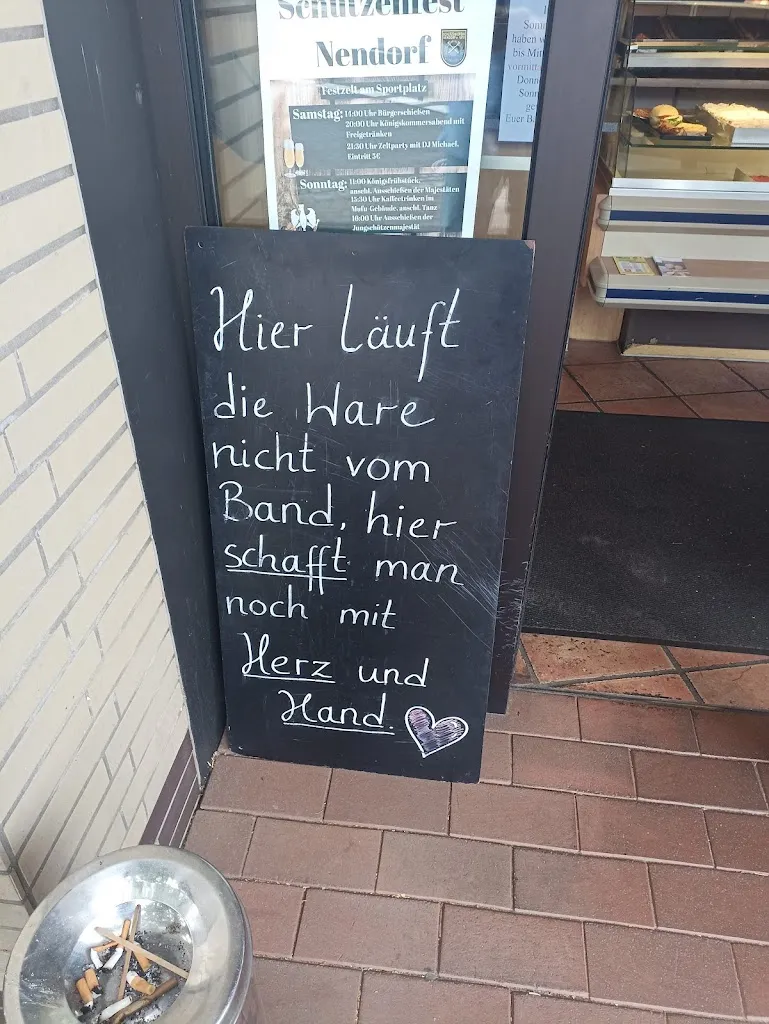 Schützenfest
Nendorf
Festzelt am Sportplatz
Samstag: 14:00 Uhr Bürgerschießen
20:00 Uhr Königskommersabend mit
Freigetränken
21:30 Uhr Zeltparty mit DJ Michael,
Eintritt 5€
Sonntag: 11:00 Königsfrühstück,
anschl. Ausschießen der Majestäten
15:30 Uhr Kaffeetrinken im
Mufu-Gebäude, anschl. Tanz
18:00 Uhr Ausschießen der
Jungschützenmajestät
haben w
bis Mit
vormitt
Donn
Sonn
ge
Euer Ba
Hier läuft
die Ware
nicht vom
Band, hier
schafft man
noch mit
Herz und
Hand.